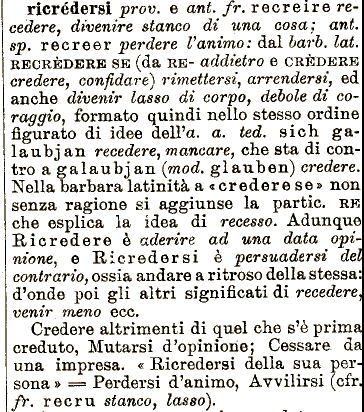 ricrédersi prov. e ant. fr. recreire re-
cedere, divenire stanco di una cosa; ant.
sp. recreer perdere l'animo: dal barb. lat.
RECRÈDERE SE (da RE- addietro e CRÈDERE
credere, confidare) rimettersi, arrendersi, ed
anche divenir lasso di corpo, debole di co-
raggio, formato quindi nello stesso ordine
figurato di idee dell'a. a. ted. sich ga-
laubjan recedere, mancare, che sta di con-
tro a galaubjan (mod. glauben) credere.
Nella barbara latinità a «crederese» non
senza ragione si aggiunse la partic. RE
che esplica la idea di recesso. Adunque
Ricredere è aderire ad una data opi-
nione, e Ricredersi è persuadersi del
contrario, ossia andare a ritroso della stessa:
d'onde poi gli altri significati di recedere,
venir meno ecc.
Credere altrimenti di quel che s'è prima
creduto, Mutarsi d'opinione; Cessare da
una impresa. « Ricredersi della sua per-
sona » = Perdersi d'animo, Avvilirsi (cfr.
fr. recru stanco, lasso).